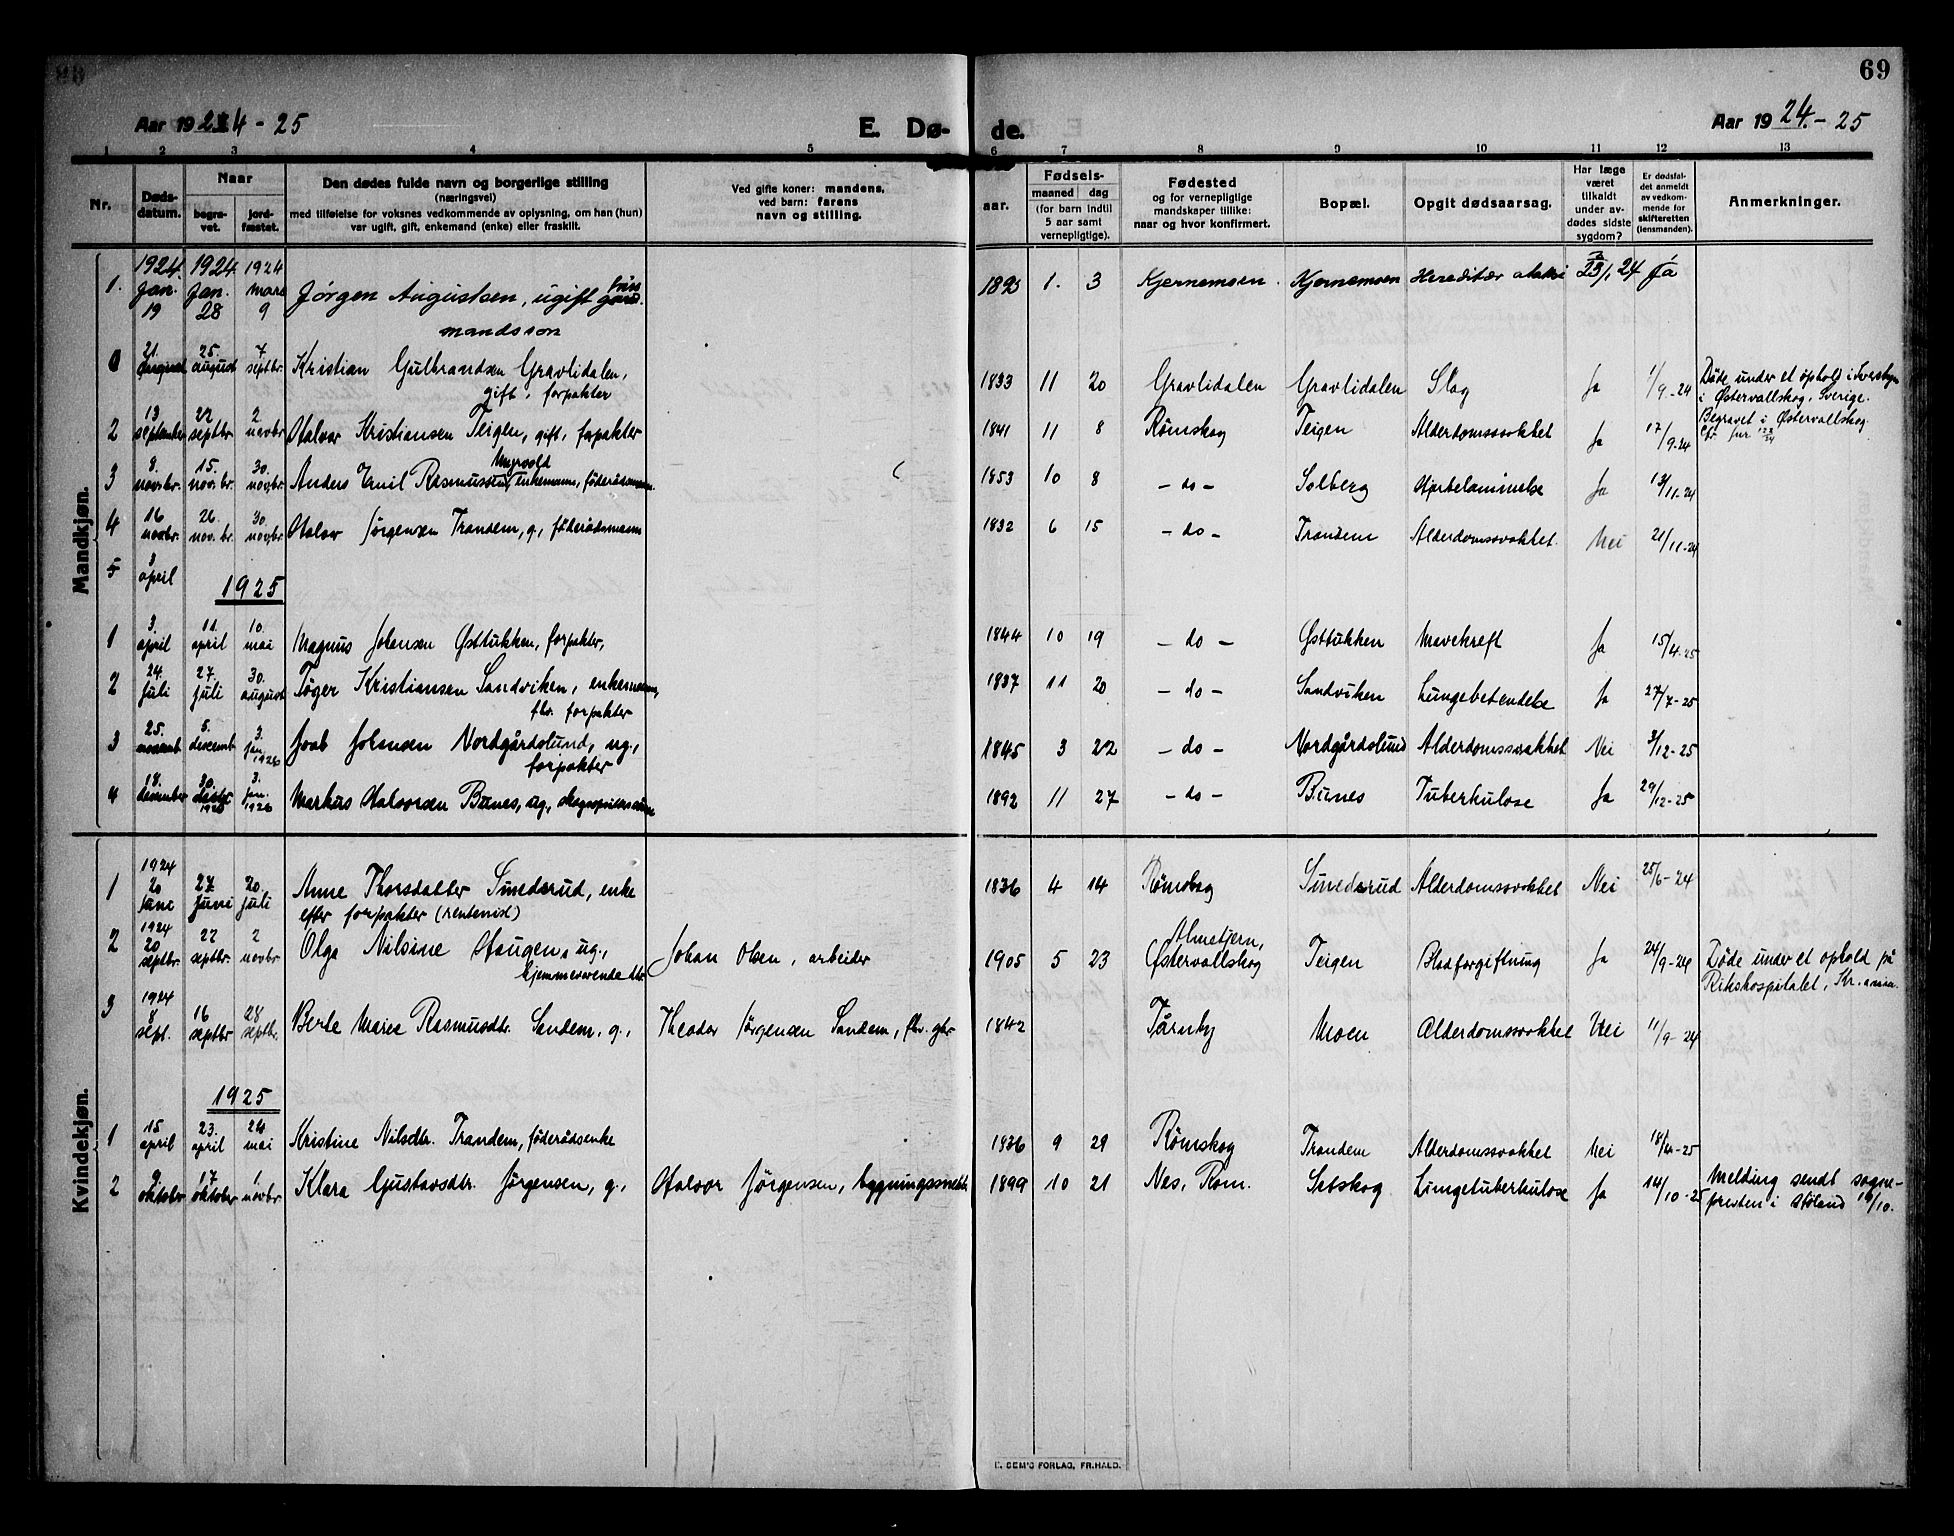 69
Aar 1924 - 25
E. Dø-
de.
Aar 1924. - 25
1 2 3 4 5 6 7 8 9 10 11 12 13
Nr.
Døds-
datum.
Naar
begra-
vet.
jord-
fæstet.
Den dødes fulde navn og borgerlige stilling
(næringsvei)
med tilføielse for voksnes vedkommende av oplysning, om han (hun)
var ugift, gift, enkemand (enke) eller fraskilt.
Ved gifte koner: mandens,
ved barn: farens
navn og stilling.
aar.
Fødsels-
maaned dag
(for barn indtil
5 aar samt
vernepligtige).
Fødested
og for vernepligtige
mandskaper tillike:
naar og hvor konfirmert.
Bopæl.
Opgit dødsaarsag.
Har læge
været
tilkaldt
under av-
dødes sidste
sygdom?
Er dødsfal-
det anmeldt
av vedkom-
mende for
skifteretten
(lensmanden).
Anmerkninger.
Mandkjøn.
1924. 1924. 1924
1. Jan. 19 Jan. 28 mars 9 Jørgen Augustsen, ugift
mandssøn
1895 1. 3 Kjernemoen. Kjernemoen Hereditær ataksi 23/1 24 Ja
21. august 25. august 7 septbr. Kristian Gulbrandsen Gravlidalen,
gift, forpakter
1833 11 20 Gravlidalen Gravlidalen Slag Ja 1/9-24 Døde under et ophold i
i Østervallskog, Sverige.
Begravet i Østervallskog
2 13 september 22 septbr 2 novbr Halvor Kristiansen Teigen, gift, forpakter
1841 11 8 Rømskog Teigen Alderdomssvakhet Ja 17/9-24
3 8. nov.br. 15. nov.br. 30. nov.br. Anders Emil Rasmussen Myrvold enkemann, føderådsmann
1853 10 8 - do - Solberg Hjertelammelse Ja 13/11-24
4 16 novbr. 26. nov.br. 30. nov.br. Halvor Jørgensen Trandem, g., føderådsmann
1832 6 15 - do - Trandem Alderdomssvakhet. Nei 21/11-24
5 3 april
1925
1 3. april 11. april 10. mai Magnus Johansen Østtukken, forpakter,
1844 10 19 - do - Østtukken Mavekreft Ja 15/4-25
2 24. juli 27. juli 30. august Tøger Kristiansen Sandviken, enkemann,
fhv. forpakter
1837 11 20 - do - Sandviken Lungebetendelse Ja 27/7-25
3 25. 5. desemb. 3. jan. 1926 Joab Johansen Nordgårdslund, ug.,
forpakter
1845 3 22 - do - Nordgårdslund Alderdomssvakhet Nei 3/12-25
4 18. desember 30. 3. jan. 1926 Markus Halvorsen Bunes, ug.,
1892 11 27 - do - Bunes Tuberkulose Ja 29/12-25
Kvindekjøn.
1924
1 20 juni 27 juni 20. juli Anne Thorsdatter Smedsrud, enke
efter forpakter (rentenist)
1836 4 14 Rømskog Smedsrud Alderdomssvakhet Nei 25/6-24
1924
2 20 septbr. 27 septbr. 2 novbr Olga Nilsine Haugen, ug.,
hjemmeværende dtr.
Johan Olsen, arbeider
1905 5 23 Østervallskog Teigen Blodforgiftning Ja 24/9-24 Døde under et ophold på
Rikshospitalet, Kr.ania.
1924
3 8 sept. 16 septbr 28 septbr. Berte Marie Rasmusdtr. Sandem, g.,
Theodor Jørgensen Sandem, fhv. gbr
1842 Tårnby Moen Alderdomssvakhet Nei 11/9-24
1925
1 15 april 23. april 24 mai Kristine Nilsdtr. Trandem, føderådsenke
1836 9 29 Rømskog Trandem Alderdomssvakhet Nei 18/4-25
2 9. oktobr 17 oktobr 1 novbr Klara Gustavsdtr. Jørgensen, g.,
Halvor Jørgensen, bygningssnekker
1899 10 21 Nes, Rom. Setskog Lungetuberkulose Ja 14/10-25 Melding sendt sogne-
presten i Høland 19/10.
E. SEM'S FORLAG, FR.HALD.